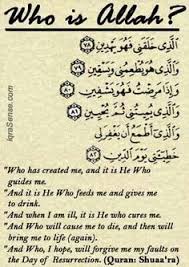 Who is Allah?
الَّذِي خَلَقَنِي فَهُوَ يَهْدِينِ ٧٨
وَالَّذِي هُوَ يُطْعِمُنِي وَيَسْقِينِ ٧٩
وَإِذَا مَرِضْتُ فَهُوَ يَشْفِينِ ٨٠
وَالَّذِي يُمِيتُنِي ثُمَّ يُحْيِينِ ٨١
وَالَّذِي أَطْمَعُ أَن يَغْفِرَ لِي
خَطِيئَتِي يَوْمَ الدِّينِ ٨٢
IqraSense.com
"Who has created me, and it is He Who
guides me.
"And it is He Who feeds me and gives me
to drink.
"And when I am ill, it is He who cures me.
"And Who will cause me to die, and then will
bring me to life (again).
"And Who, I hope, will forgive me my faults on
the Day of Resurrection. (Quran: Shuaa'ra)